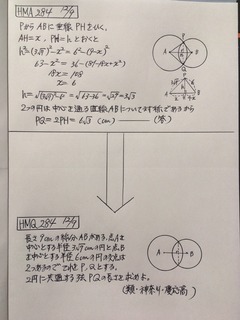 HMA 284 12/9
PからABに垂線PHをひく。
AH=x, PH=hとおくと
h²=(3√7)²-x²=6²-(9-x)²
63-x²=36-(81-18x+x²)
18x=108
x=6
h=√(3√7)²-6²=√63-36=√27=3√3
2つの円は中心を通る直線ABについて対称であるから
PQ=2PH=6√3(cm) (答)
P
A
B
Q
P
A
B
HMQ 284 12/9
長さ9cmの線分ABがある。点Aを
中心とする半径3√7cmの円と点B
を中心とする半径6cmの円の交点は
2つあるのでこれをP, Qとする。
2円に共通する弦PQの長さを求めよ。
(類・神奈川・慶応高)
A
B